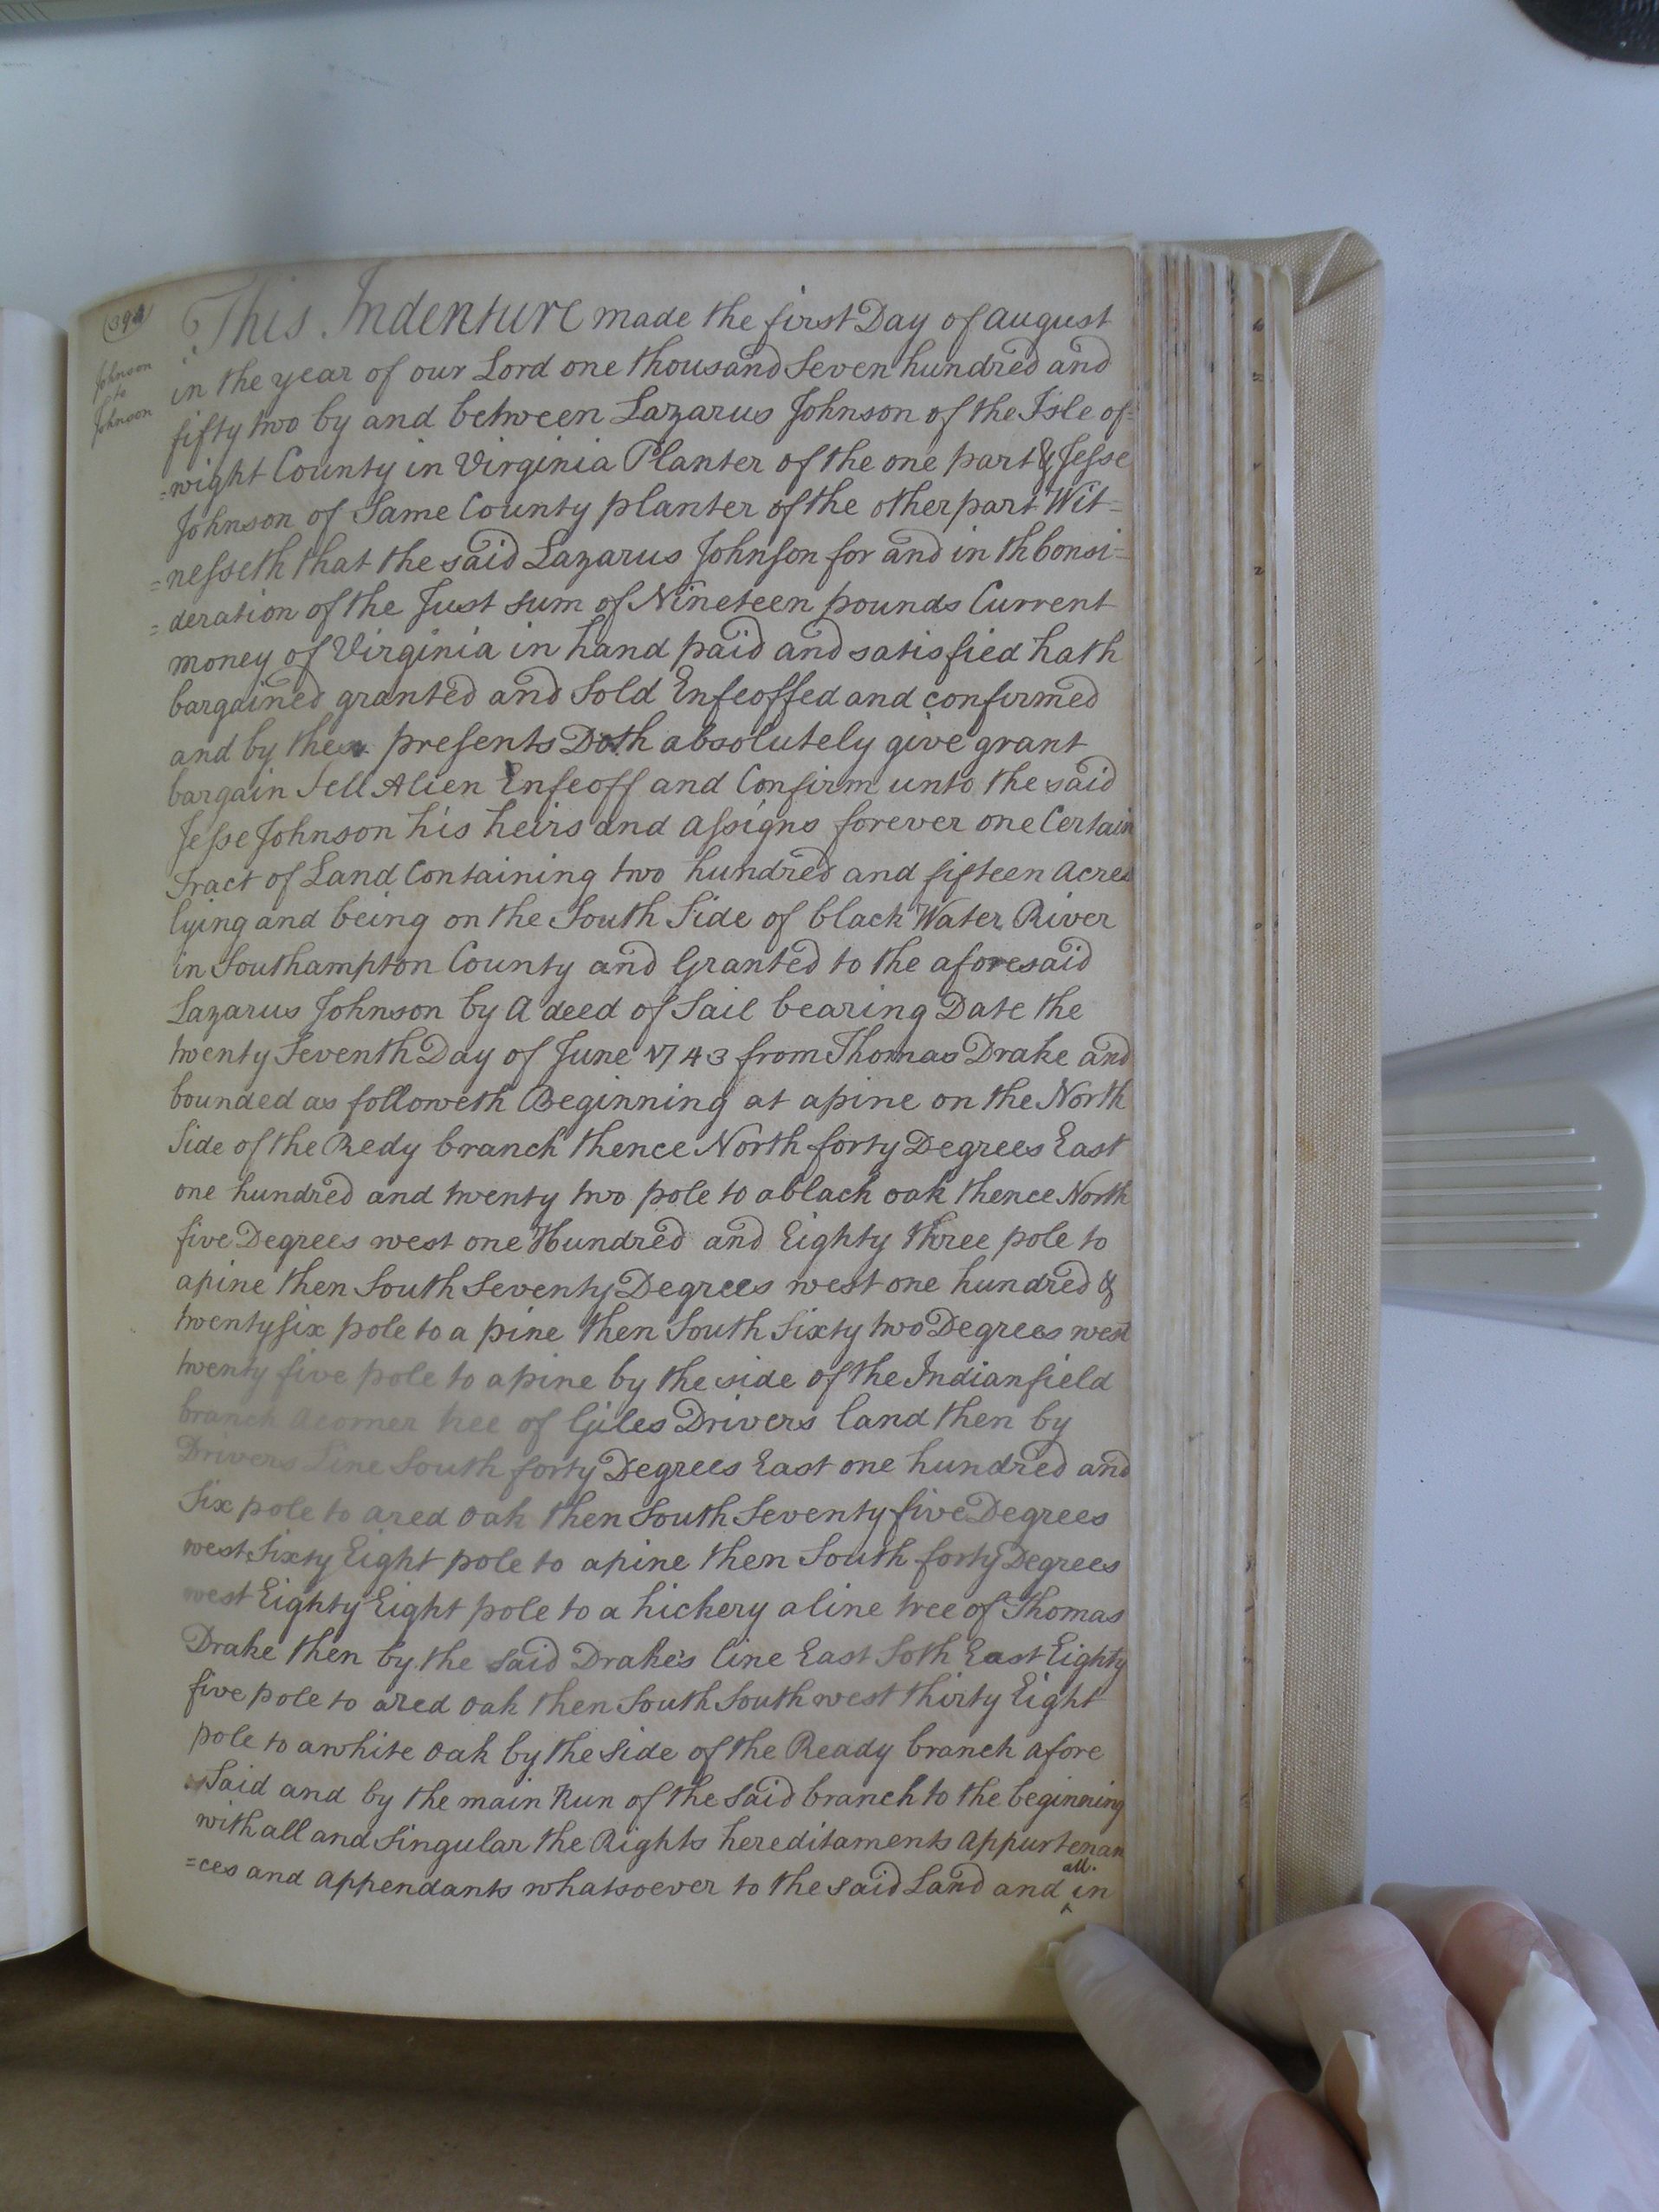 (394)
Johnson
to
Johnson
This Indenture made the first Day of august
in the year of our Lord one thousand Seven hundred and
fifty two by and between Lazarus Johnson of the Isle of=
=wight County in Virginia Planter of the one part & Jesse
Johnson of Same County planter of the other part Wit=
=nesseth that the said Lazarus Johnson for and in th Consi=
=deration of the Just sum of Nineteen pounds Current
money of Virginia in hand paid and satisfied hath
bargained granted and Sold Enfeoffed and confirmed
and by these presents Doth absolutely give grant
bargain Sell Alien Enfeoff and Confirm unto the said
Jesse Johnson his heirs and assigns forever one Certain
Tract of Land Containing two hundred and fifteen acres
lying and being on the South Side of black Water River
in Southampton County and Granted to the aforesaid
Lazarus Johnson by A deed of Sail bearing Date the
twenty Seventh Day of June 1743 from Thomas Drake and
bounded as followeth Beginning at apine on the North
Side of the Redy branch thence North forty Degrees East
one hundred and twenty two pole to ablack oak thence North
five Degrees west one Hundred and Eighty three pole to
apine then South Seventy Degrees west one hundred &
twenty six pole to a pine then South Sixty two Degrees west
twenty five pole to apine by the side of the Indianfield
branch acorner tree of Giles Drivers land then by
Drivers Line South forty Degrees East one hundred and
Six pole to ared oak then South Seventy five Degrees
west Sixty Eight pole to apine then South forty Degrees
west Eighty Eight pole to a hickery aline tree of Thomas
Drake then by the said Drake's line East Soth East Eighty
five pole to ared oak then South South west thirty Eight
pole to awhite oak by the side of the Ready branch afore
Said and by the main Run of the said branch to the beginning
with all and Singular the Rights hereditaments appurtenan
=ces and appendants whatsoever to the said Land and all in